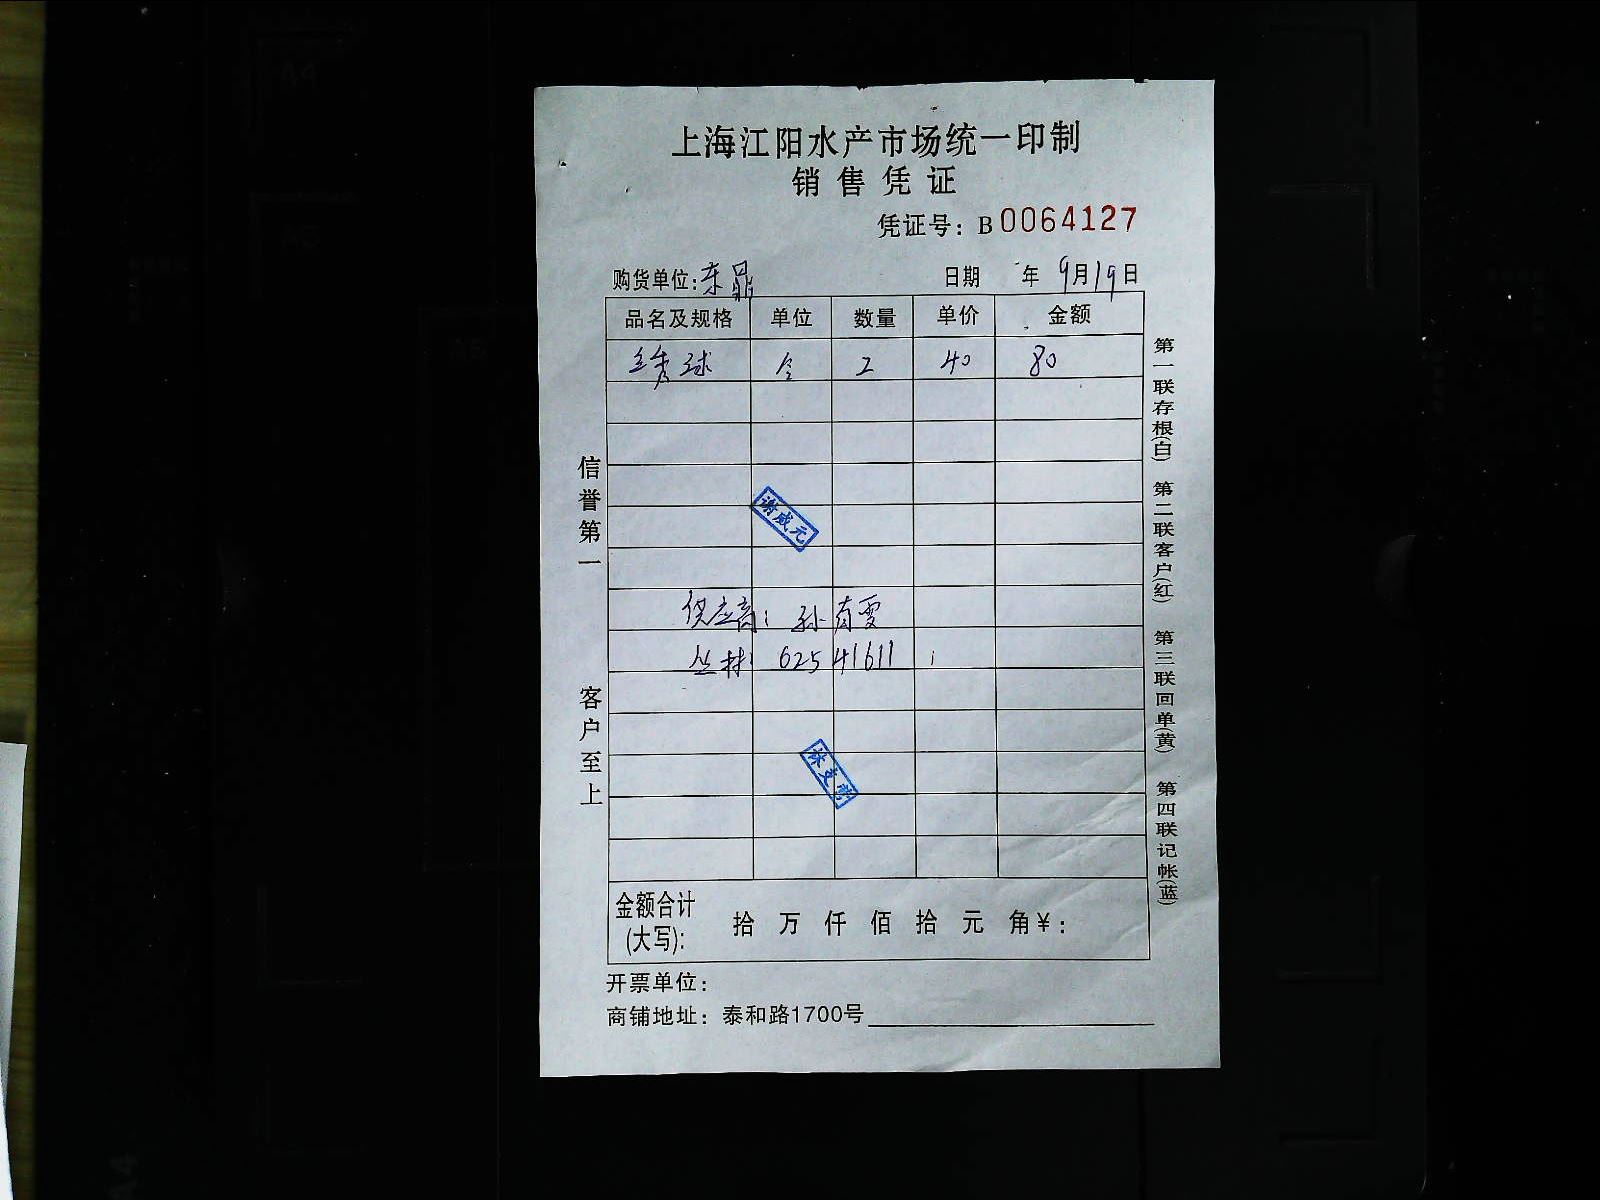 上海江阳水产市场统一印制
销售凭证
凭证号：B0064127
购货单位：东鼎 日期 年 9月19日
品名及规格 单位 数量 单价 金额
绣球 个 2 40 80
谢成元
供应商：孙有雯
丛林：62541611
林支
信誉第一
客户至上
第一联存根(白) 第二联客户(红) 第三联回单(黄) 第四联记帐(蓝)
金额合计 拾 万 仟 佰 拾 元 角¥：
(大写)：
开票单位：
商铺地址：泰和路1700号